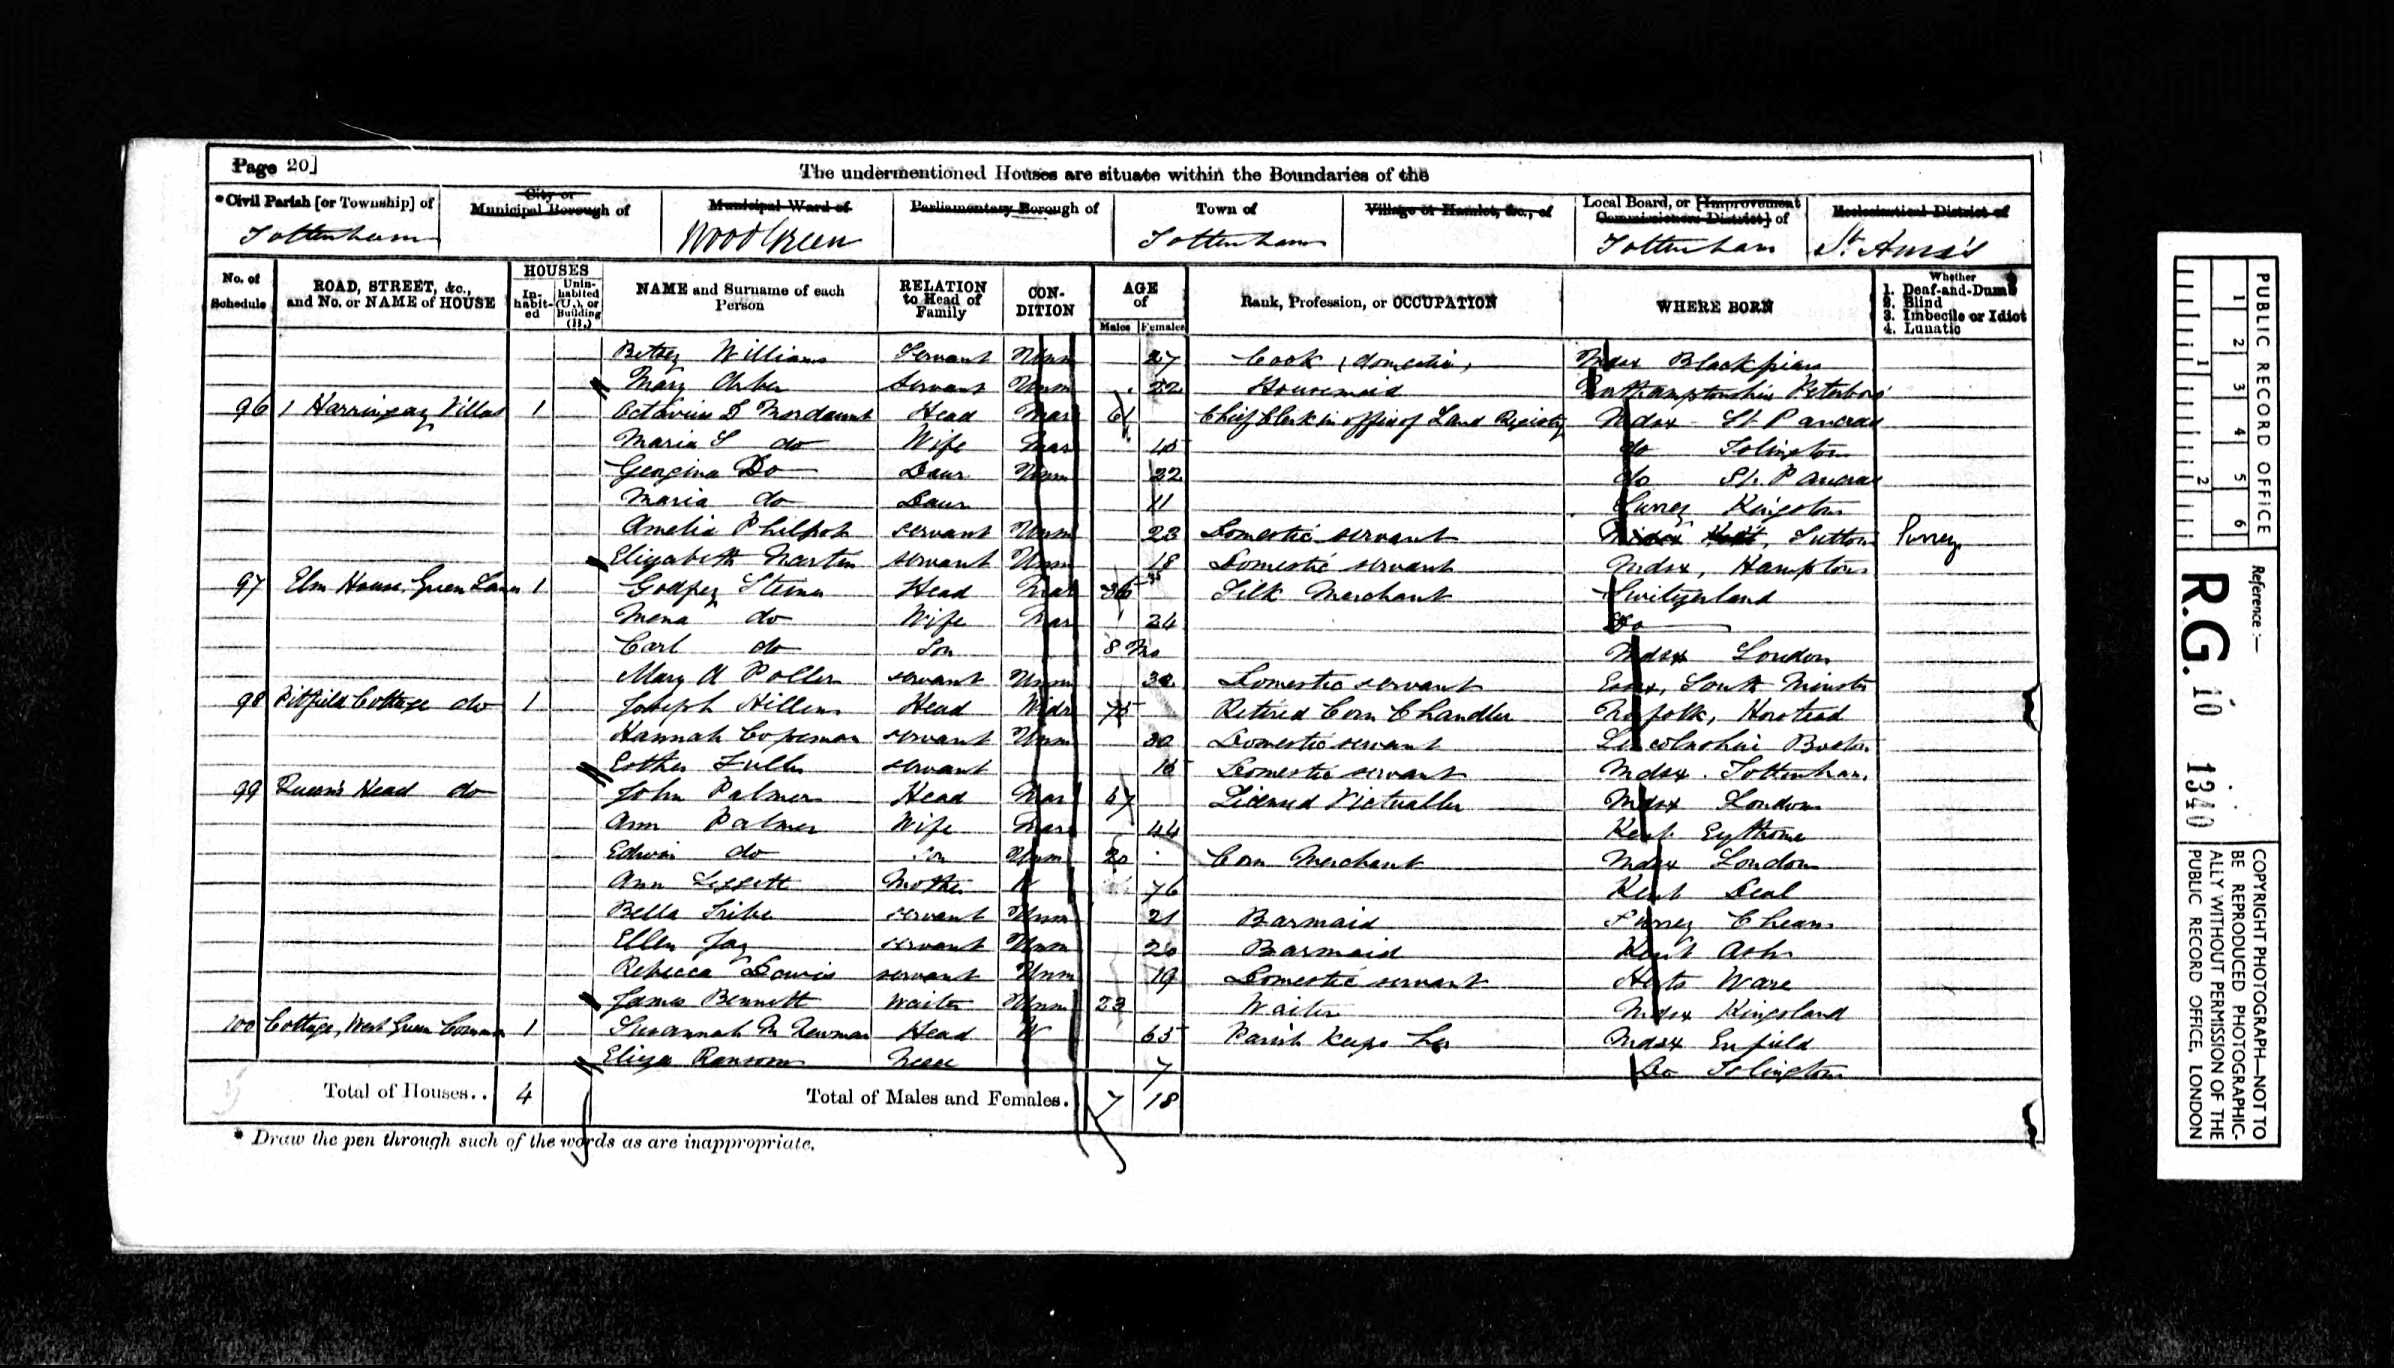 Page 20]
The undermentioned Houses are situate within the Boundaries of the
*Civil Parish [or Township] of
City or Municipal Borough of
Municipal Ward of
Parliamentary Borough of
Town of
Village or Hamlet, &c., of
Local Board, or [Improvement Commissioners District] of
Ecclesiastical District of
Tottenham Wood Green Tottenham Tottenham St. Ann's
No. of Schedule
ROAD, STREET, &c., and No. or NAME of HOUSE
HOUSES
In-habit-ed
Unin-habited (U.), or Building (B.)
NAME and Surname of each Person
RELATION to Head of Family
CON-DITION
AGE of
Males Females
Rank, Profession, or OCCUPATION
WHERE BORN
Whether
1. Deaf-and-Dumb
2. Blind
3. Imbecile or Idiot
4. Lunatic
Betsey Williams Servant Unm 27 Cook (domestic) Mdsx Blackfriars
Mary Servant Unm 22 Housemaid Northamptonshire Peterboro'
96 1 Harringay Villas 1 Octavius D Mordaunt Head Mar 61 Chief Clerk in office of Land Registry Mdsx St Pancras
Maria S do Wife Mar do Islington
Georgina Do Daur Unm 22 do St. Pancras
Maria do Daur 11 Surrey Kingston
Amelia Philpot servant Unm 23 Domestic servant Sutton Surrey
Elizabeth Martin servant Unm 18 Domestic servant Mdsx, Hampton
97 Elm House, Green Lanes 1 Godfrey Steiner Head Mar 36 Silk Merchant Switzerland
Mena do Wife Mar 24 Do
Carl do Son 8 Mo Mdsx London
Mary A Poller servant Unm Domestic servant Essex, South Minster
98 Pitfield Cottage do 1 Joseph Hillen Head Widr 75 Retired Corn Chandler Norfolk, Horstead
Hannah Copeman servant Unm 30 Domestic servant Lincolnshire Boston
Esther Fuller servant Domestic servant Mdsx. Tottenham
99 Queen's Head do John Palmer Head Mar Licensed Victualler Mdsx London
Ann Palmer Wife Mar 44 Kent Eythorne
Edwin do Son Unm 20 Corn Merchant Mdsx London
Ann Mother W 76 Kent Deal
Bella Tribe servant Unm 21 Barmaid Surrey Cheam
Ellen Jay servant Unm 20 Barmaid Kent Ash
Rebecca Davis servant Unm 19 Domestic servant Herts Ware
James Bennett Waiter Unm 23 Waiter Mdsx Kingsland
100 Cottage, West Green Common 1 Susannah M Newman Head W 65 Parish Keeps her Mdsx Enfield
Eliza Ransom Neese 7 Do Islington
Total of Houses.. 4 Total of Males and Females. 7 18
* Draw the pen through such of the words as are inappropriate.
PUBLIC RECORD OFFICE
1 2 3 4 5 6
1 2
Reference:—
R.G. 10 1340
COPYRIGHT PHOTOGRAPH—NOT TO
BE REPRODUCED PHOTOGRAPHIC-
ALLY WITHOUT PERMISSION OF THE
PUBLIC RECORD OFFICE, LONDON